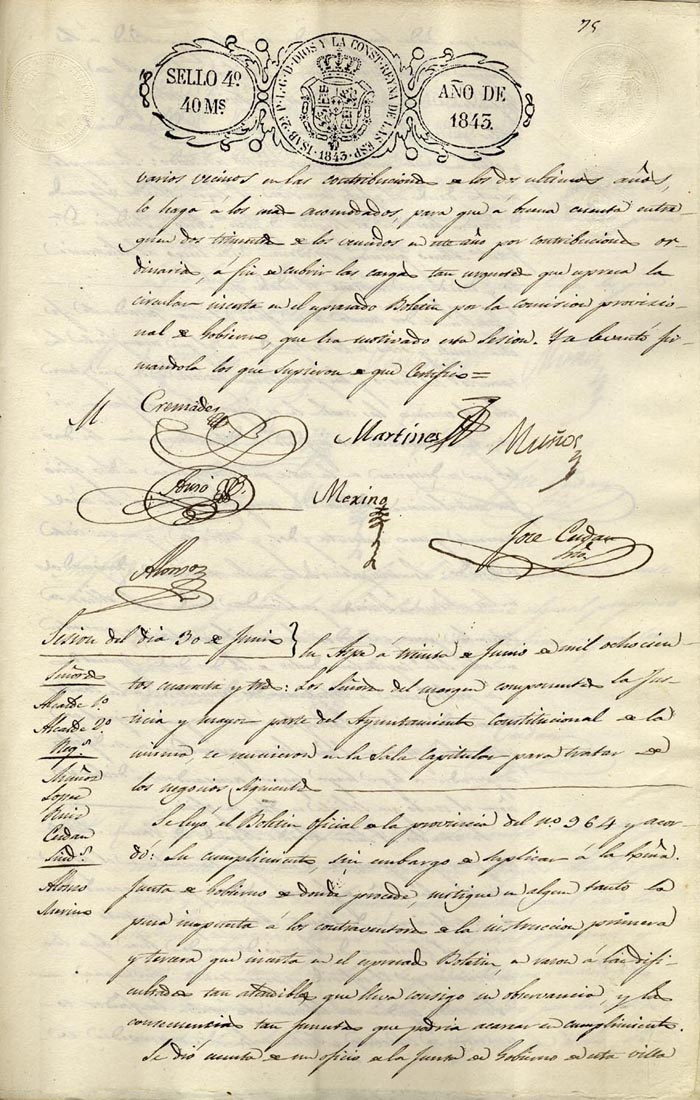 75
SELLO 4º
40 Ms
ISAB. 2ª P. L. G. D. DIOS Y LA CONST. REYNA DE LAS ESP. 1843.
AÑO DE
1843.
varios vecinos en las contribuciones de los dos ultimos años,
lo haga á los mas acomodados, para que á buena cuenta entre
guen dos trimestres de los vencidos en este año por contribuciones or-
dinarias, á fin de cubrir las cargas tan urgentes que espresa la
circular inserta en el espresado Boletin por la comision provisio-
nal de Gobierno, que ha motivado esta Sesion. Y se levantó fir-
mandola los que supieron de que Certifico=
Cremades
Martines
Muños
Merino
Jose Cerdan
Alonso
Sesion del dia 30 de Junio
En Aspe á treinta de Junio de mil ochocien
tos cuarenta y tres: Los Señores del margen componentes la Jus-
ticia y mayor parte del Ayuntamiento Constitucional de la
misma, se reunieron en la Sala Capitular para tratar de
los negocios siguientes
Señores
Alcalde 1º
Alcalde 2º
Regs
Muñoz
Lopez
Cerdan
Sinds
Alonso
Merino
Se leyó el Boletin oficial de la provincia del nº 964 y acor-
dó: Su cumplimiento, sin embargo de suplicar á la Exma.
Junta de Gobierno de donde procede mitigue en algun tanto la
pena impuesta á los contraventores de la instruccion primera
y tercera que inserta en el espresado Boletin, en razon á las difi-
cultades tan atendibles que lleva consigo su observancia, y las
consecuencias tan funestas que podria acarrear su cumplimiento.
Se dió cuenta de un oficio de la Junta de Gobierno de esta villa